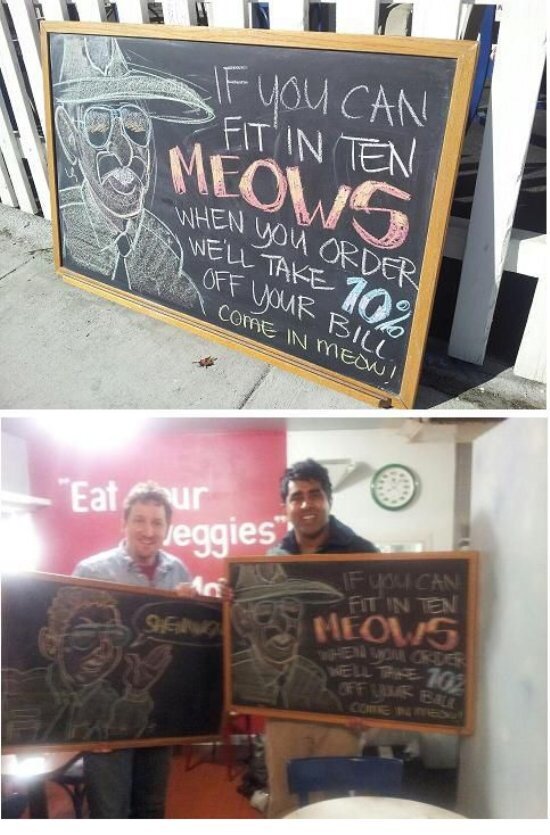 IF YOU CAN
FIT IN TEN
MEOWS
WHEN YOU ORDER
WE'LL TAKE 10%
OFF YOUR BILL
COME IN MEOW!
"Eat
veggies"
IF YOU CAN
FIT IN TEN
MEOWS
WHEN YOU ORDER
WE'LL TAKE 10%
OFF YOUR BILL
COME IN MEOW!